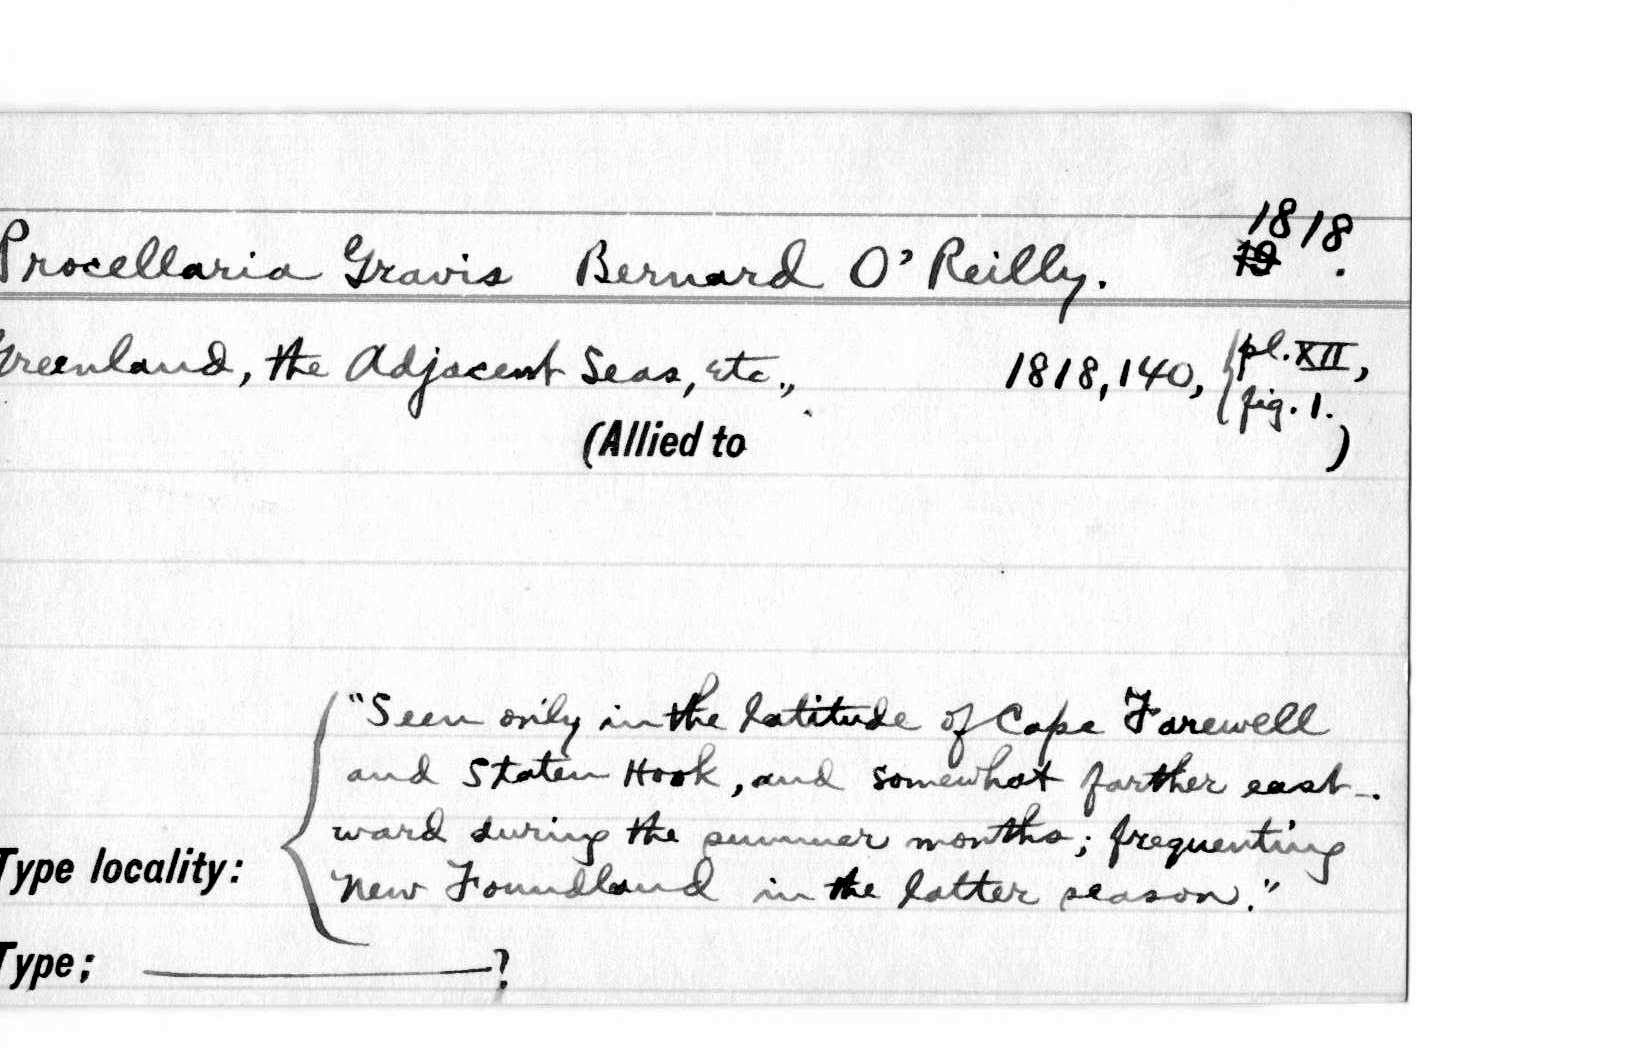 1818.
Procellaria Gravis Bernard O'Reilly. 19
Greenland, the Adjacent Seas, etc., 1818, 140, { pl. XII,
fig. 1.
(Allied to )
"Seen only in the latitude of Cape Farewell
and Staten Hook, and somewhat farther east-
ward during the summer months; frequenting
New Foundland in the latter season."
Type locality:
Type; ?